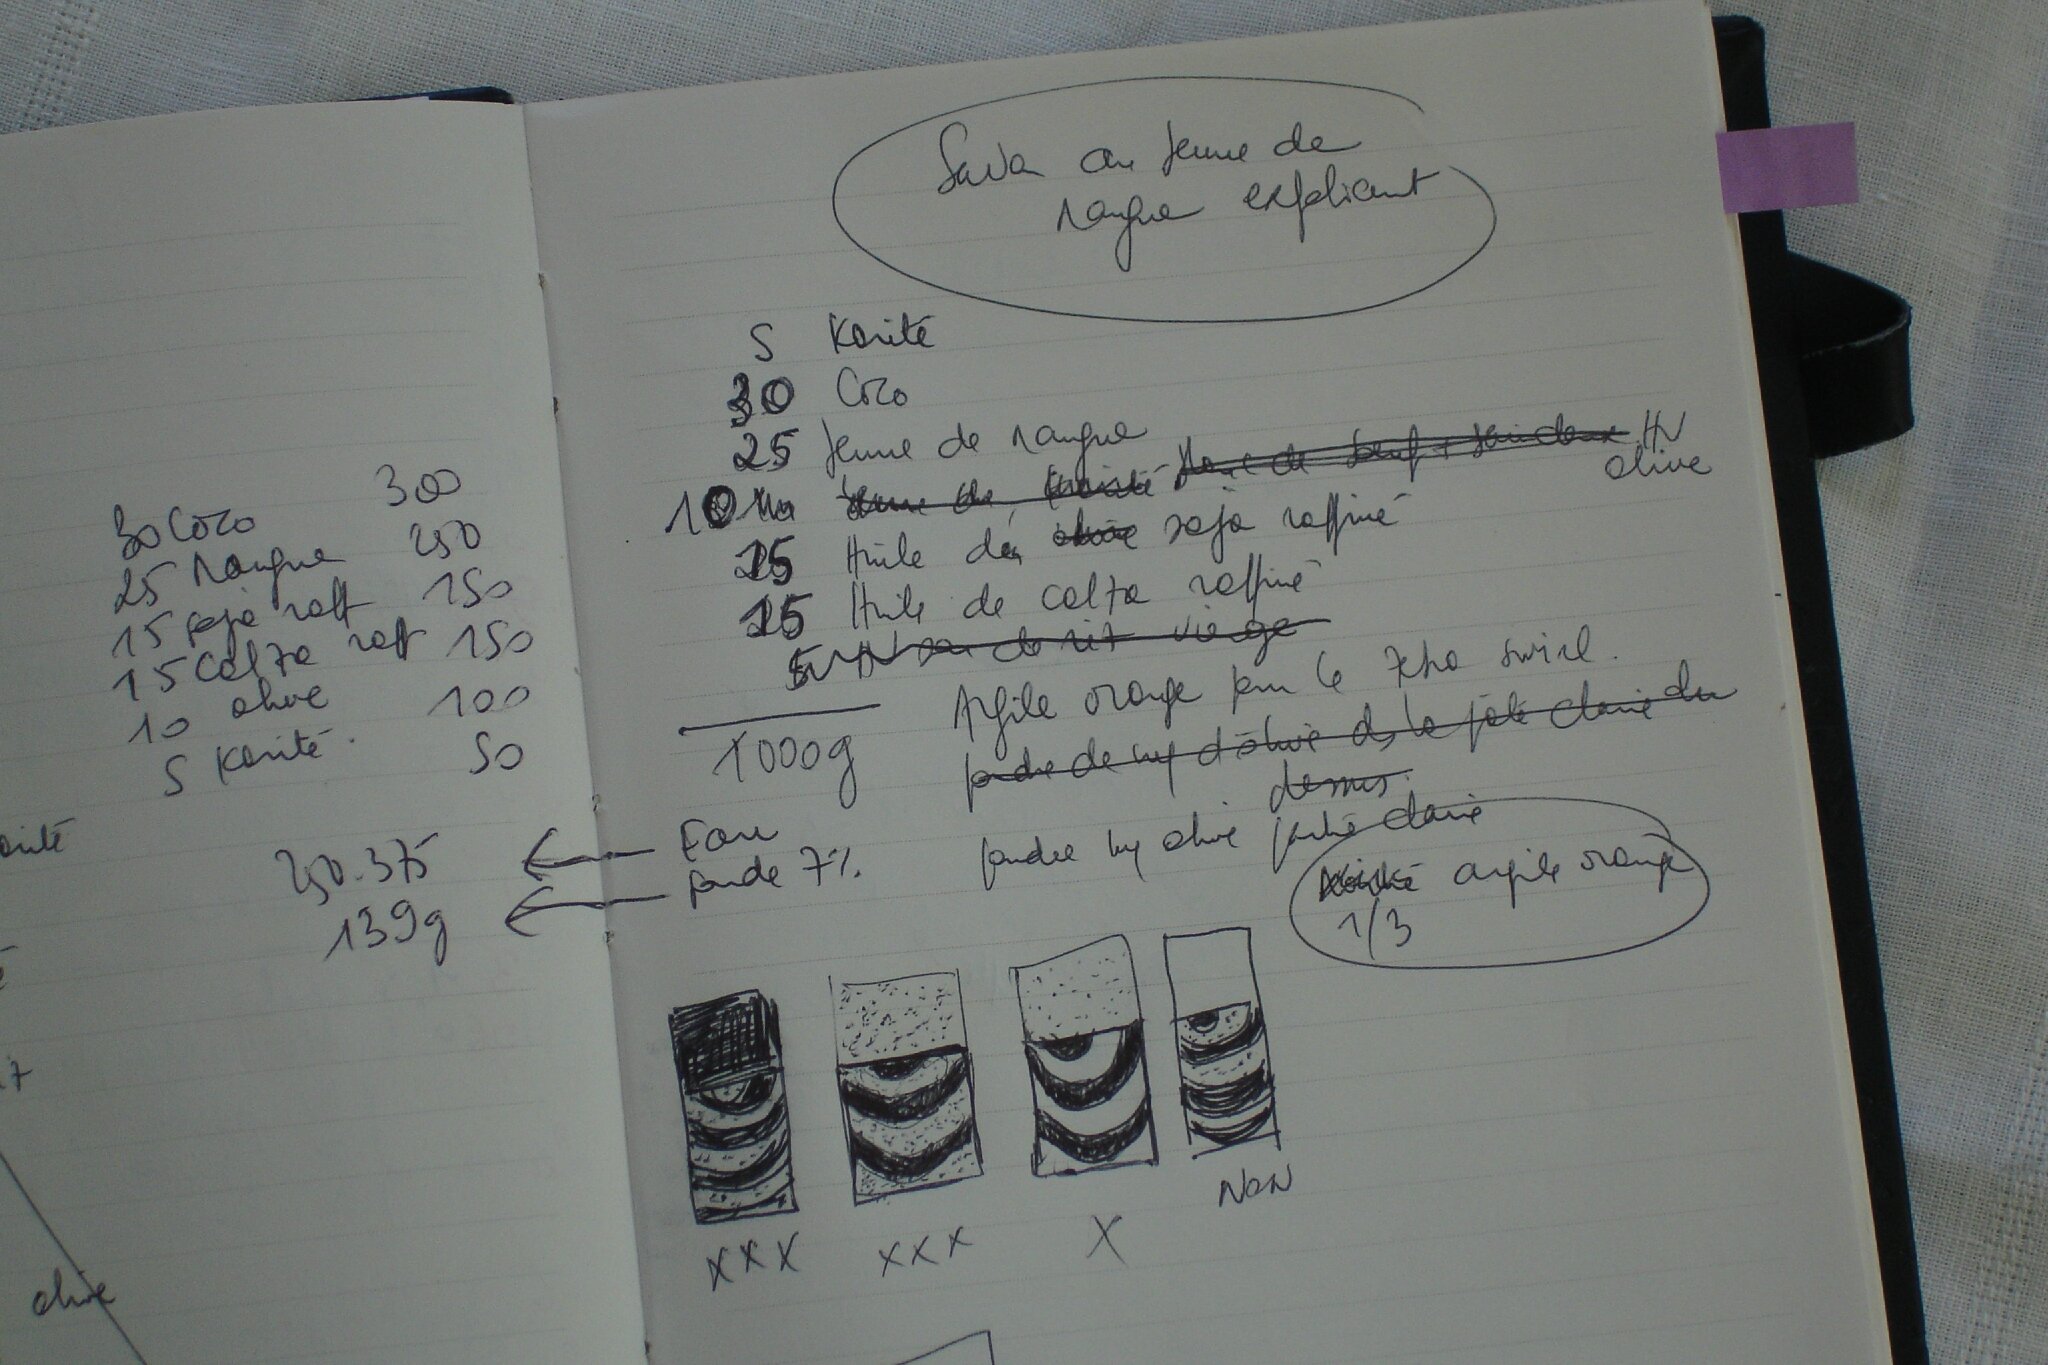 30 Coco 300
25 Mangue 250
15 soja raff 150
15 Colza raff 150
10 olive 100
5 Karité. 50
250.375
139g
olive
Savon au beurre de
Mangue exfoliant
5 Karité
30 Coco
25 beurre de Mangue
10 HV
olive
15 Huile de soja raffiné
15 Huile de colza raffiné
Argile orange pour le swirl.
1000g
dessus.
Eau
poudre ny olive partie claire
soude 7%
argile orange
1/3
NON
XXX XXX X